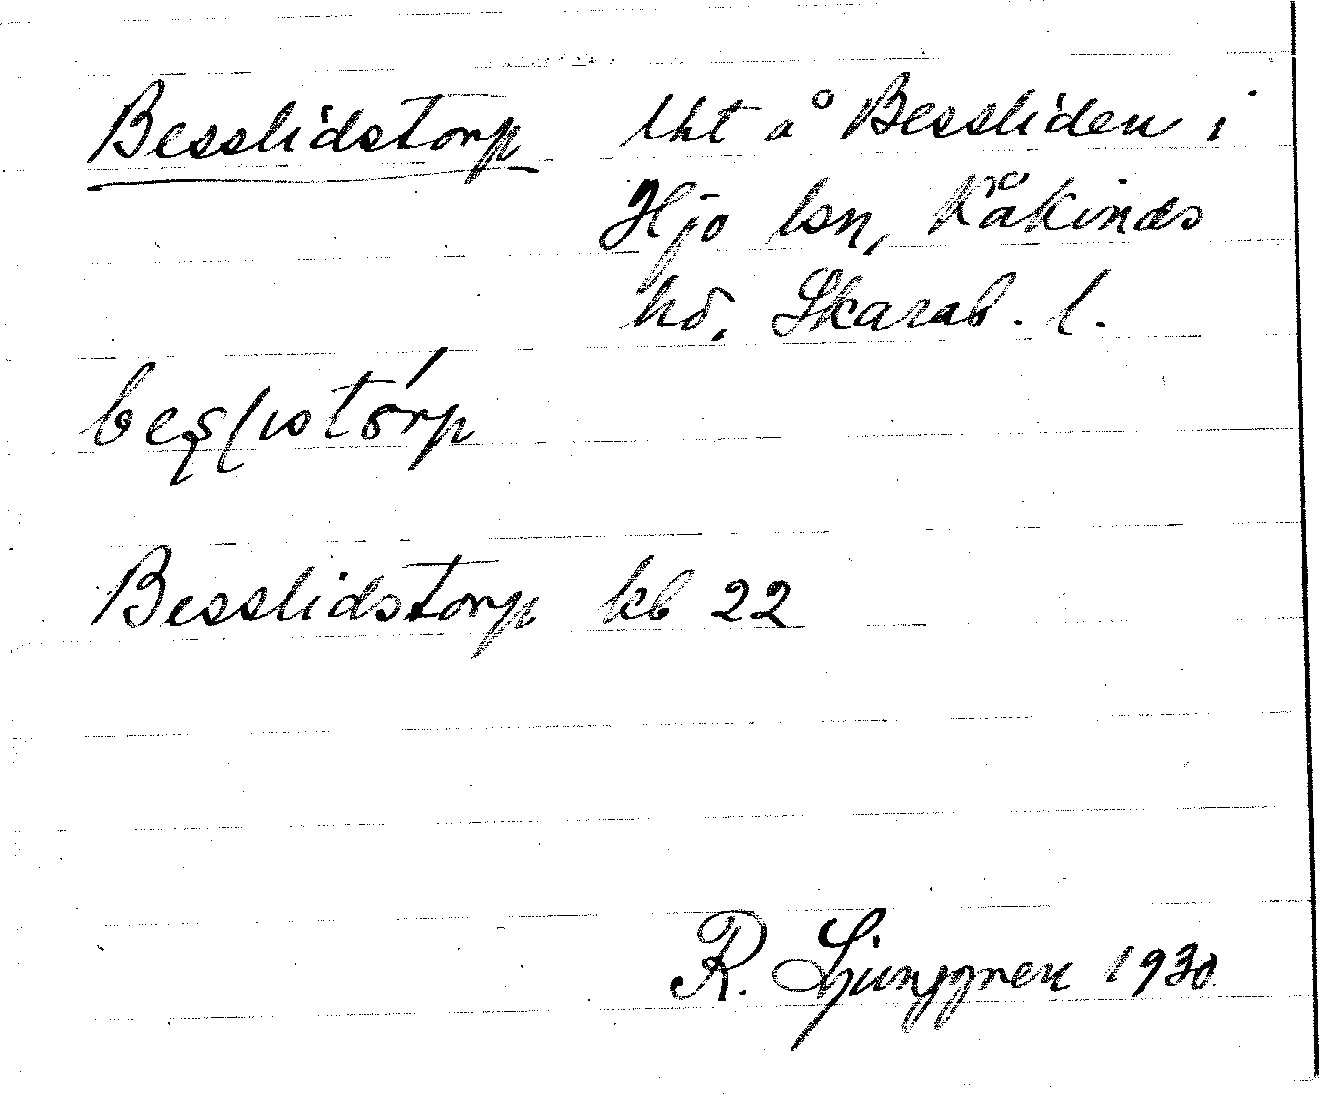 Besslidstorp lht å Bessliden i
Hjo lsn, Kåkinds
hd, Skarab. l.
Besslidstorp kb 22
R. Ljunggren 1930